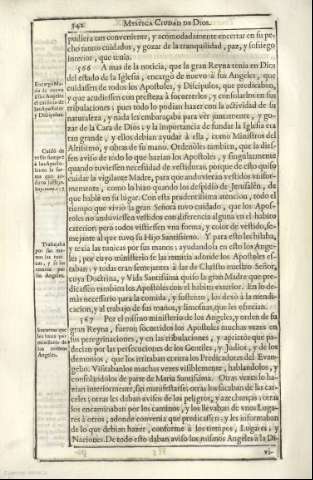 342 MYSTICA CIUDAD DE DIOS.
pudiera tan conveniente, y acomodadamente encerrar en su pe-
cho tantos cuidados, y gozar de la tranquilidad, paz, y sosiego
interior, que tenia.
166 A mas de la noticia, que la gran Reyna tenia en Dios
del estado de la Iglesia, encargò de nuevo à sus Angeles, que
cuidassen de todos los Apostoles, y Discipulos, que predicaban,
y que acudiessen con presteza à socorrerlos, y consolarlos en sus
tribulaciones; pues todo lo podian hazer con la actividad de su
naturaleza, y nada les embaraçaba para vèr juntamente, y go-
zar de la Cara de Dios: y la importancia de fundar la Iglesia era
tan grande, y ellos debian ayudar à ella, como Ministros del
Altissimo, y obras de su mano. Ordenòles tambien, que la dies-
sen aviso de todo lo que hazian los Apostoles, y singularmente
quando tuviessen necessidad de vestiduras, porque de esto quiso
cuidar la vigilante Madre, para que anduvieran vestidos unifor-
memente, como lo hizo quando los despidiò de Jerusalèn, de
que hablè en su lugar. Con esta prudentissima atencion, todo el
tiempo que viviò la gran Señora tuvo cuidado, que los Apos-
toles no anduviessen vestidos con diferencia alguna en el habito
exterior; pero todos vistiessen una forma, y color de vestido, se-
mejante al que tuvo su Hijo Santissimo. Y para esto les hilaba,
y texia las tunicas por sus manos; ayudandola en esto los Ange-
les; por cuyo ministerio se las remitia adonde los Apostoles es-
taban: y todas eran semejantes à las de Christo nuestro Señor,
cuya Doctrina, y Vida Santissima quiso la gran Madre que pre-
dicassen tambien los Apostoles con el habito exterior. En lo de-
màs necessario para la comida, y sustento, los dexò à la mendi-
cacion, y al trabajo de sus manos, y limosnas, que les ofrecian.
167 Por el mismo ministerio de los Angeles, y orden de su
gran Reyna, fueron socorridos los Apostoles muchas vezes en
sus peregrinaciones, y en las tribulaciones, y aprietos que pa-
decian por las persecuciones de los Gentiles, y Judios, y de los
demonios, que los irritaban contra los Predicadores del Evan-
gelio. Visitabanlos muchas vezes visiblemente, hablandolos, y
consolandolos de parte de Maria Santissima. Otras vezes lo ha-
zian interiormente, sin manifestarse; otras los sacaban de las car-
celes; otras les daban avisos de los peligros, y azechanças; otras
los encaminaban por los caminos, y los llevaban de unos Luga-
res à otros, adonde convenia que predicassen; y les informaban
de lo que debian hazer, conforme à los tiempos, Lugares, y
Naciones. De todo esto daban aviso los mismos Angeles à la Di-
vi-